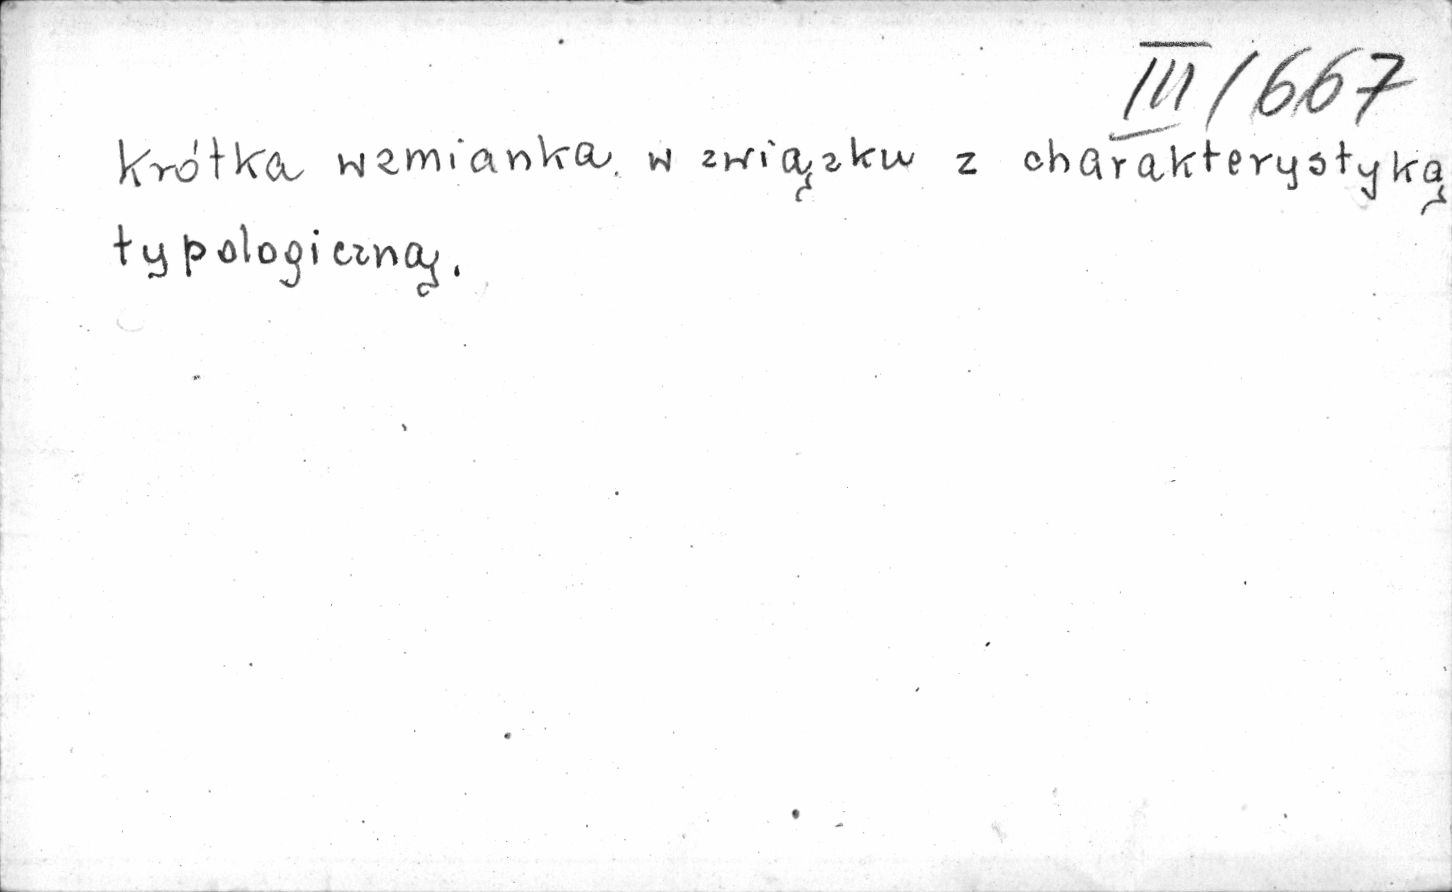 III/667
Krótka wzmianka w związku z charakterystyką
typologiczną.